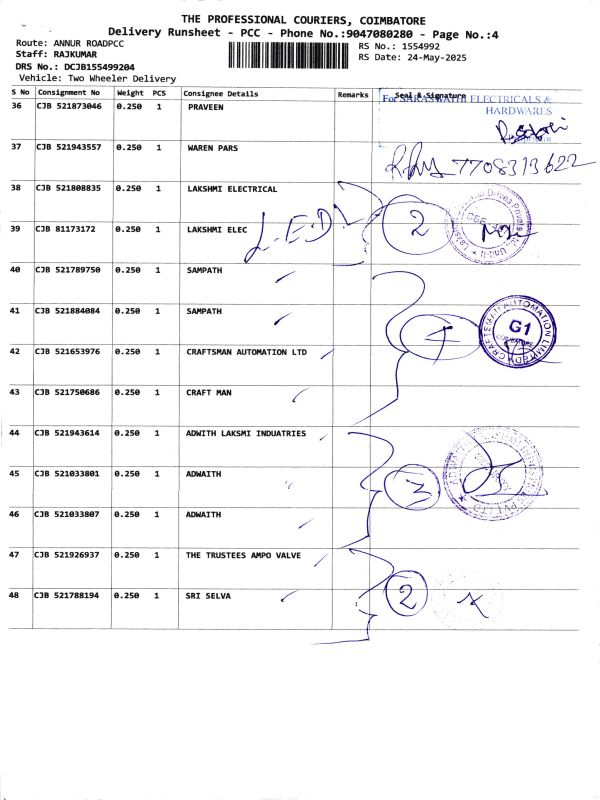 THE PROFESSIONAL COURIERS, COIMBATORE
Delivery Runsheet - PCC - Phone No.:9047080280 - Page No.:4
Route: ANNUR ROADPCC
Staff: RAJKUMAR
DRS No.: DCJB155499204
Vehicle: Two Wheeler Delivery
RS No.: 1554992
RS Date: 24-May-2025
S No Consignment No Weight PCS Consignee Details Remarks Seal & Signature
For SARASWATHI ELECTRICALS &
HARDWARES
36 CJB 521873046 0.250 1 PRAVEEN
37 CJB 521943557 0.250 1 WAREN PARS 7708313622
38 CJB 521808835 0.250 1 LAKSHMI ELECTRICAL
39 CJB 81173172 0.250 1 LAKSHMI ELEC L.E.D 2
40 CJB 521789750 0.250 1 SAMPATH
41 CJB 521884084 0.250 1 SAMPATH 4
CRAFTSMAN AUTOMATION LIMITED
G1
COIMBATORE
42 CJB 521653976 0.250 1 CRAFTSMAN AUTOMATION LTD
43 CJB 521750686 0.250 1 CRAFT MAN
44 CJB 521943614 0.250 1 ADWITH LAKSMI INDUATRIES
45 CJB 521033801 0.250 1 ADWAITH 3
46 CJB 521033807 0.250 1 ADWAITH
47 CJB 521926937 0.250 1 THE TRUSTEES AMPO VALVE
48 CJB 521788194 0.250 1 SRI SELVA 2